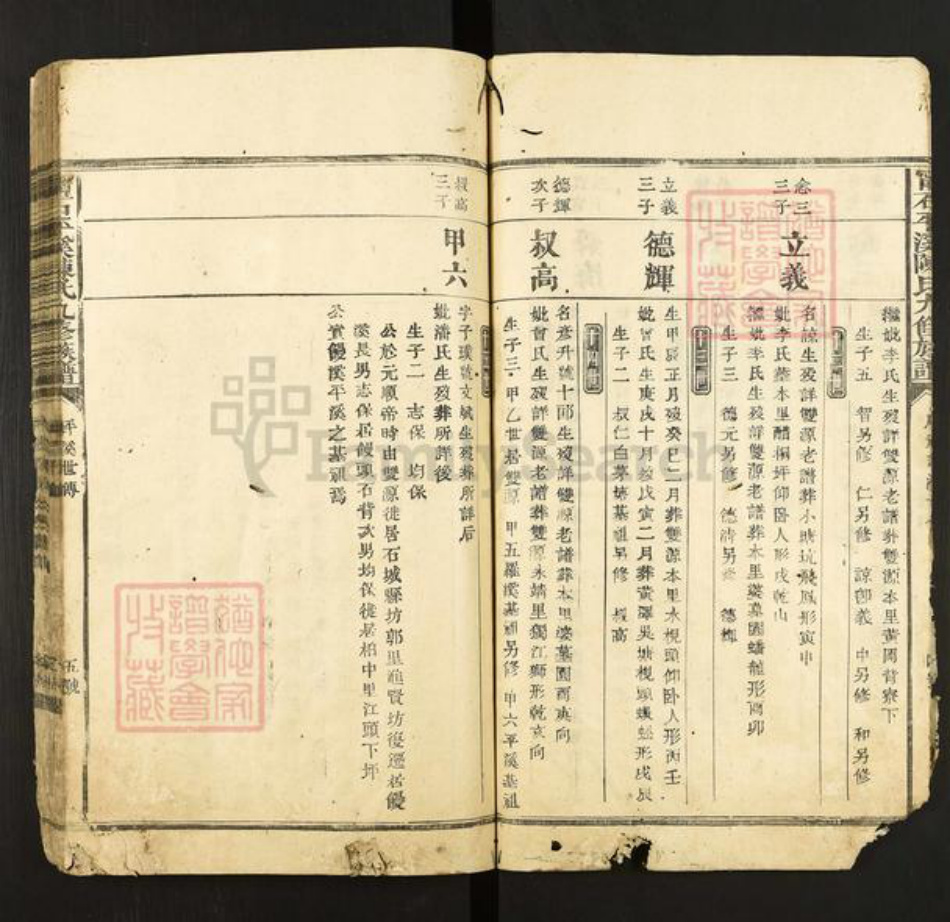 繼妣李氏生歿詳雙源老譜葬雙源本里黃岡背寮下
生子五 智另修 仁另修 諒即義 中另修 和另修
念三
三子
立義
名諒生歿詳雙源老譜葬小塘坑飛鳳形寅申
妣李氏葬本里醋棡坪仰臥人形戌乾山
繼妣李氏生歿詳雙源老譜葬本里婆墓園蟠龍形酉卯
生子三 德元另修 德清另修 德輝
立義
三子
德輝
生甲辰正月歿癸巳二月葬雙源本里水梘頭仰臥人形丙壬
妣曾氏生庚戌十月歿戊寅二月葬黃澤吳塘梘頭蜈蚣形戌辰
生子二 叔仁白茅基祖另修 叔高
德輝
次子
叔高
名彥升號十郎生歿詳雙源老譜葬本里婆墓園酉東向
妣曾氏生歿詳雙源老譜葬雙源永靖里獨江獅形乾亥向
生子三 甲乙世居雙源 甲五羅溪基祖另修 甲六平溪基祖
叔高
三子
甲六
字子璞號文斌生歿葬所詳后
妣潘氏生歿葬所詳後
生子二 志保 均保
公於元順帝時由雙源徙居石城縣坊郭里進賢坊復遷居饅
溪長男志保居饅頭石背次男均保徙居柏中里江頭下坪
公實饅溪平溪之基祖焉
石平溪陳氏九修族譜
坪溪世傳
五號
譜學會
收藏
FamilySearch